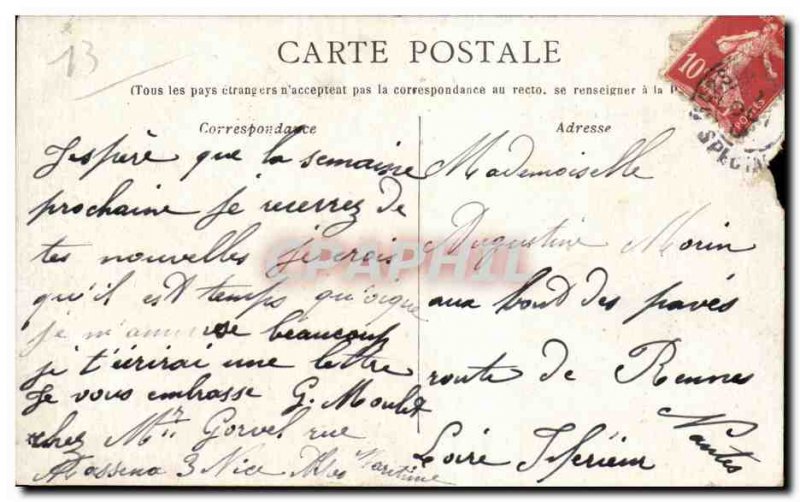 13
CARTE POSTALE
(Tous les pays étrangers n'acceptent pas la correspondance au recto. se renseigner à la
Correspondance
J'espère que la semaine
prochaine je recerrez de
tes nouvelles jécrois
qu'il est temps qu'oique
je m'amuse beaucoup
je t'écrirai une lettre
Je vous embrasse G. Moulet
chez Mr Gorvel rue
Massena 3 Nice Alpes Maritime
Adresse
Mademoiselle
Augustine Morin
aux bout des pavés
route de Rennes
Nantes
Loire Inferieur
10
SPECIA
CPAPHIL